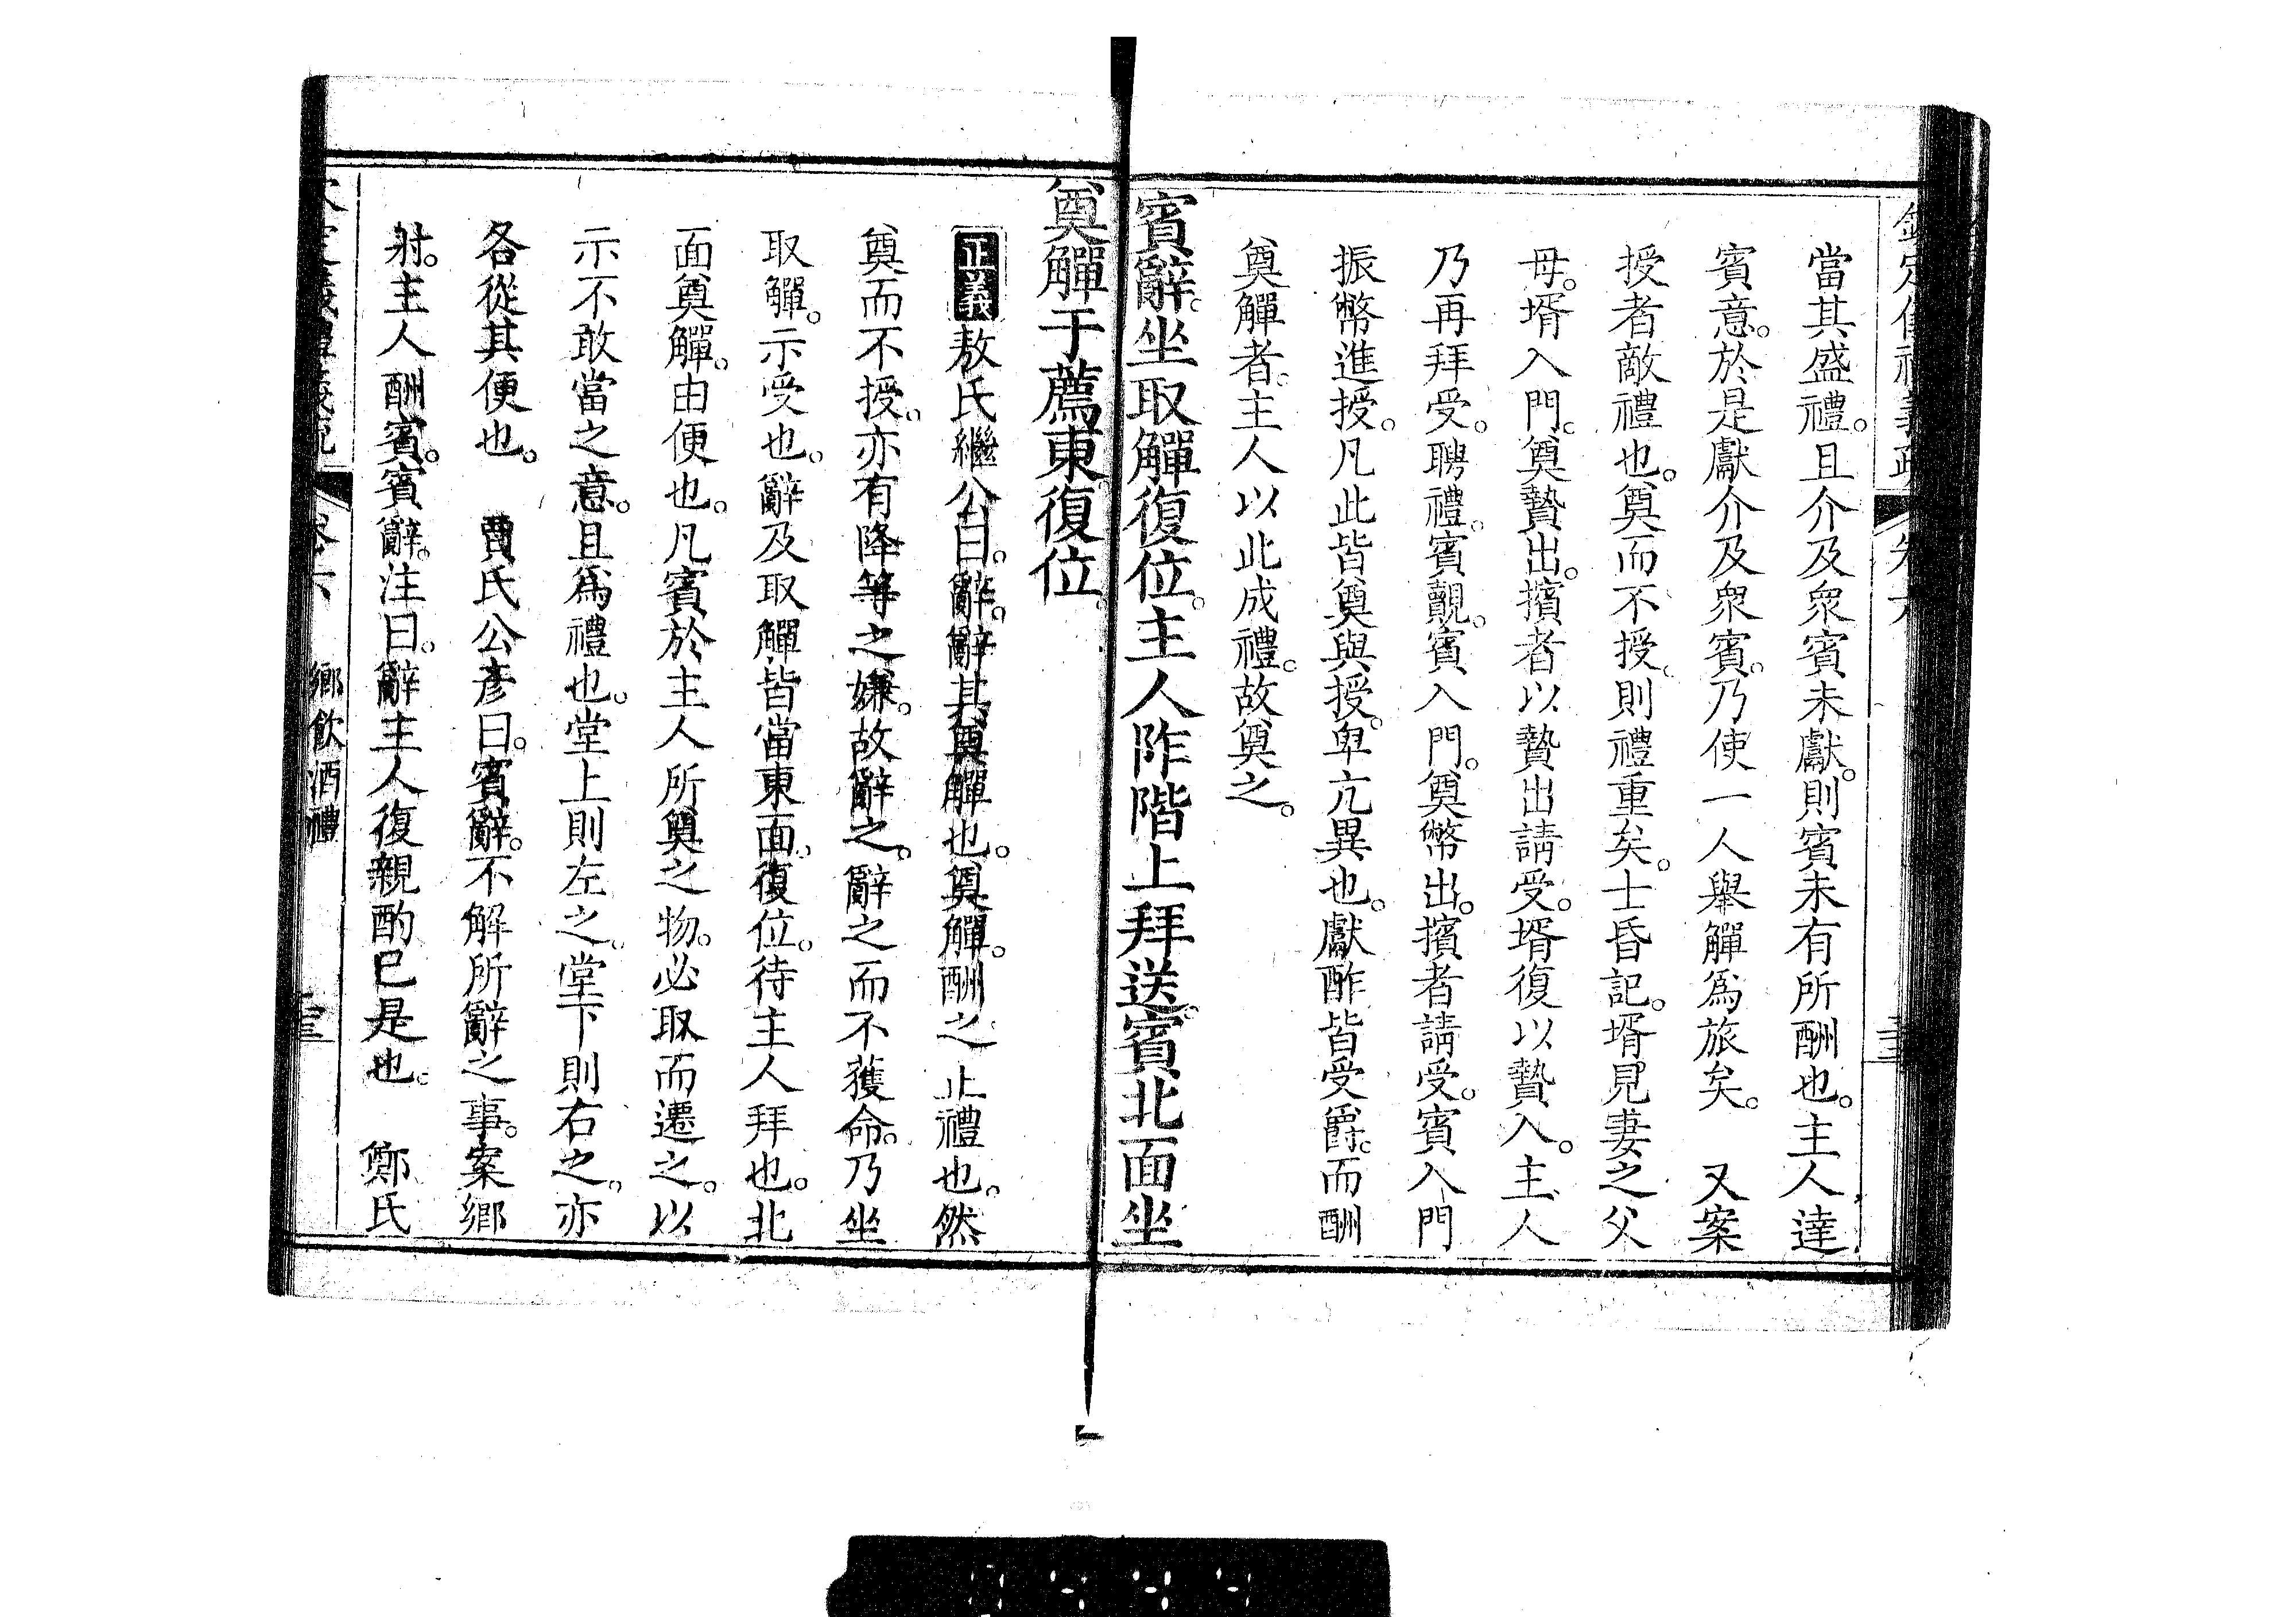 當其盛禮。且介及衆賓未獻。則賓未有所酬也。主人達
賓意。於是獻介及衆賓。乃使一人舉觶爲旅矣。　又案
授者敵禮也。奠而不授。則禮重矣。士昏記。壻見妻之父
母。壻入門。奠贄出。擯者以贄出請受。壻復以贄入。主人
乃再拜受。聘禮。賓覿。賓入門。奠幣出。擯者請受。賓入門
振幣進授。凡此皆奠與授。卑亢異也。獻酢皆受爵。而酬
奠觶者。主人以此成禮。故奠之。
賓辭。坐取觶復位。主人阼階上拜送。賓北面坐
奠觶于薦東復位。
正義敖氏繼公曰。辭。辭其奠觶也。奠觶。酬之止禮也。然
奠而不授。亦有降等之嫌。故辭之。辭之而不獲命。乃坐
取觶。示受也。辭及取觶皆當東面。復位。待主人拜也。北
面奠觶。由便也。凡賓於主人所奠之物。必取而遷之。以
示不敢當之意。且爲禮也。堂上則左之。堂下則右之。亦
各從其便也。　賈氏公彥曰。賓辭。不解所辭之事。案鄉
射。主人酬賓。賓辭。注曰。辭主人復親酌已是也。　鄭氏
鄉飲酒禮